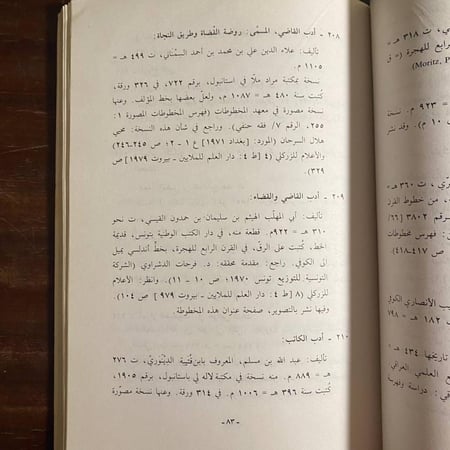 ٢٠٨ - أدب القاضي، المسمّى: روضة القُضاة وطريق النجاة:
تأليف: علاء الدين علي بن محمد بن أحمد السمناني، ت ٤٩٩ هـ =
١١٠٥ م.
نسخة بمكتبة مراد ملّا في استانبول، برقم ٧٢٢، في ٣٢٦ ورقة،
كُتبت سنة ٤٨٠ هـ = ١٠٨٧ م، ولعلّ بعضها بخط المؤلف. وعنها
نسخة مصورة في معهد المخطوطات (فهرس المخطوطات المصورة ١:
٢٥٥، الرقم ٧/ فقه حنفي). وراجع في شأن هذه النسخة: محيي
هلال السرحان (المورد: [بغداد ١٩٧١] ع ١ - ٢؛ ص ٢٤٥-٢٤٦)
والأعلام للزركلي (٤ [ط ٤: دار العلم للملايين - بيروت ١٩٧٩] ص
٣٢٩).
٢٠٩ - أدب القاضي والقضاء:
تأليف: أبي المهلّب الهيثم بن سليمان بن حمدون القيسي، ت نحو
٣١٠ هـ = ٩٢٢م. قطعة منه، في دار الكتب الوطنية بتونس، قديمة
الخط، كُتبت على الرق، في القرن الرابع للهجرة، بخطّ أندلسي يميل
إلى الكوفي. راجع: مقدمة محققه: د. فرحات الدشراوي (الشركة
التونسية للتوزيع تونس ١٩٧٠؛ ص ١٠ - ١١). وانظر: الأعلام
للزركلي (٨ [ط ٤: دار العلم للملايين - بيروت ٩٧٩] ص ١٠٤).
وفيها نشر بالتصوير، صفحة عنوان هذه المخطوطة.
٢١٠ - أدب الكاتب:
تأليف: عبد الله بن مسلم، المعروف بابن قُتيبة الدِّيْنَوَريّ، ت ٢٧٦
هـ = ٨٨٩ م. منه نسخة في مكتبة لاله لي باستانبول، برقم ١٩٠٥،
كُتبت سنة ٣٩٦ هـ = ١٠٠٦ م. في ٣١٤ ورقة. وعنها نسخة مصوّرة
- ٨٣ -
ت ٣١٨ هـ =
رابع للهجرة (= ق
(Moritz, P
= ٩٢٣ م. نسخة
١٠ م). وقد نشر
، ت ٣٦٠ هـ =
، من خطوط القرن
رقم ٣٨٠٢ [٦٦/
: فهرس مخطوطات
ص ٤١٧-٤١٨)
الأنصاري الكوفي
١٨٢ هـ = ٧٩٨
تاريخها ٤٣٤ هـ =
العلمي العراقي
: دراسة وفهرسة